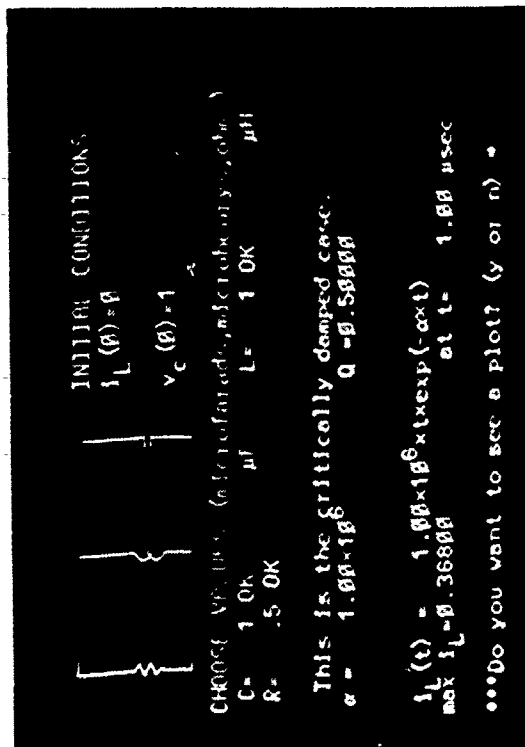 INITIAL CONDITIONS
i_L(0)=0
v_C(0)=1
CHOOSE VALUES (microfarads,microhenrys,ohms)
C= 1 OK μf L= 1 OK μH
R= .5 OK
This is the critically damped case.
α = 1.00×10⁶ Q =0.50000
i_L(t) = 1.00×10⁶×t×exp(-α×t)
max i_L=0.36800 at t= 1.00 μsec
***Do you want to see a plot? (y or n) →